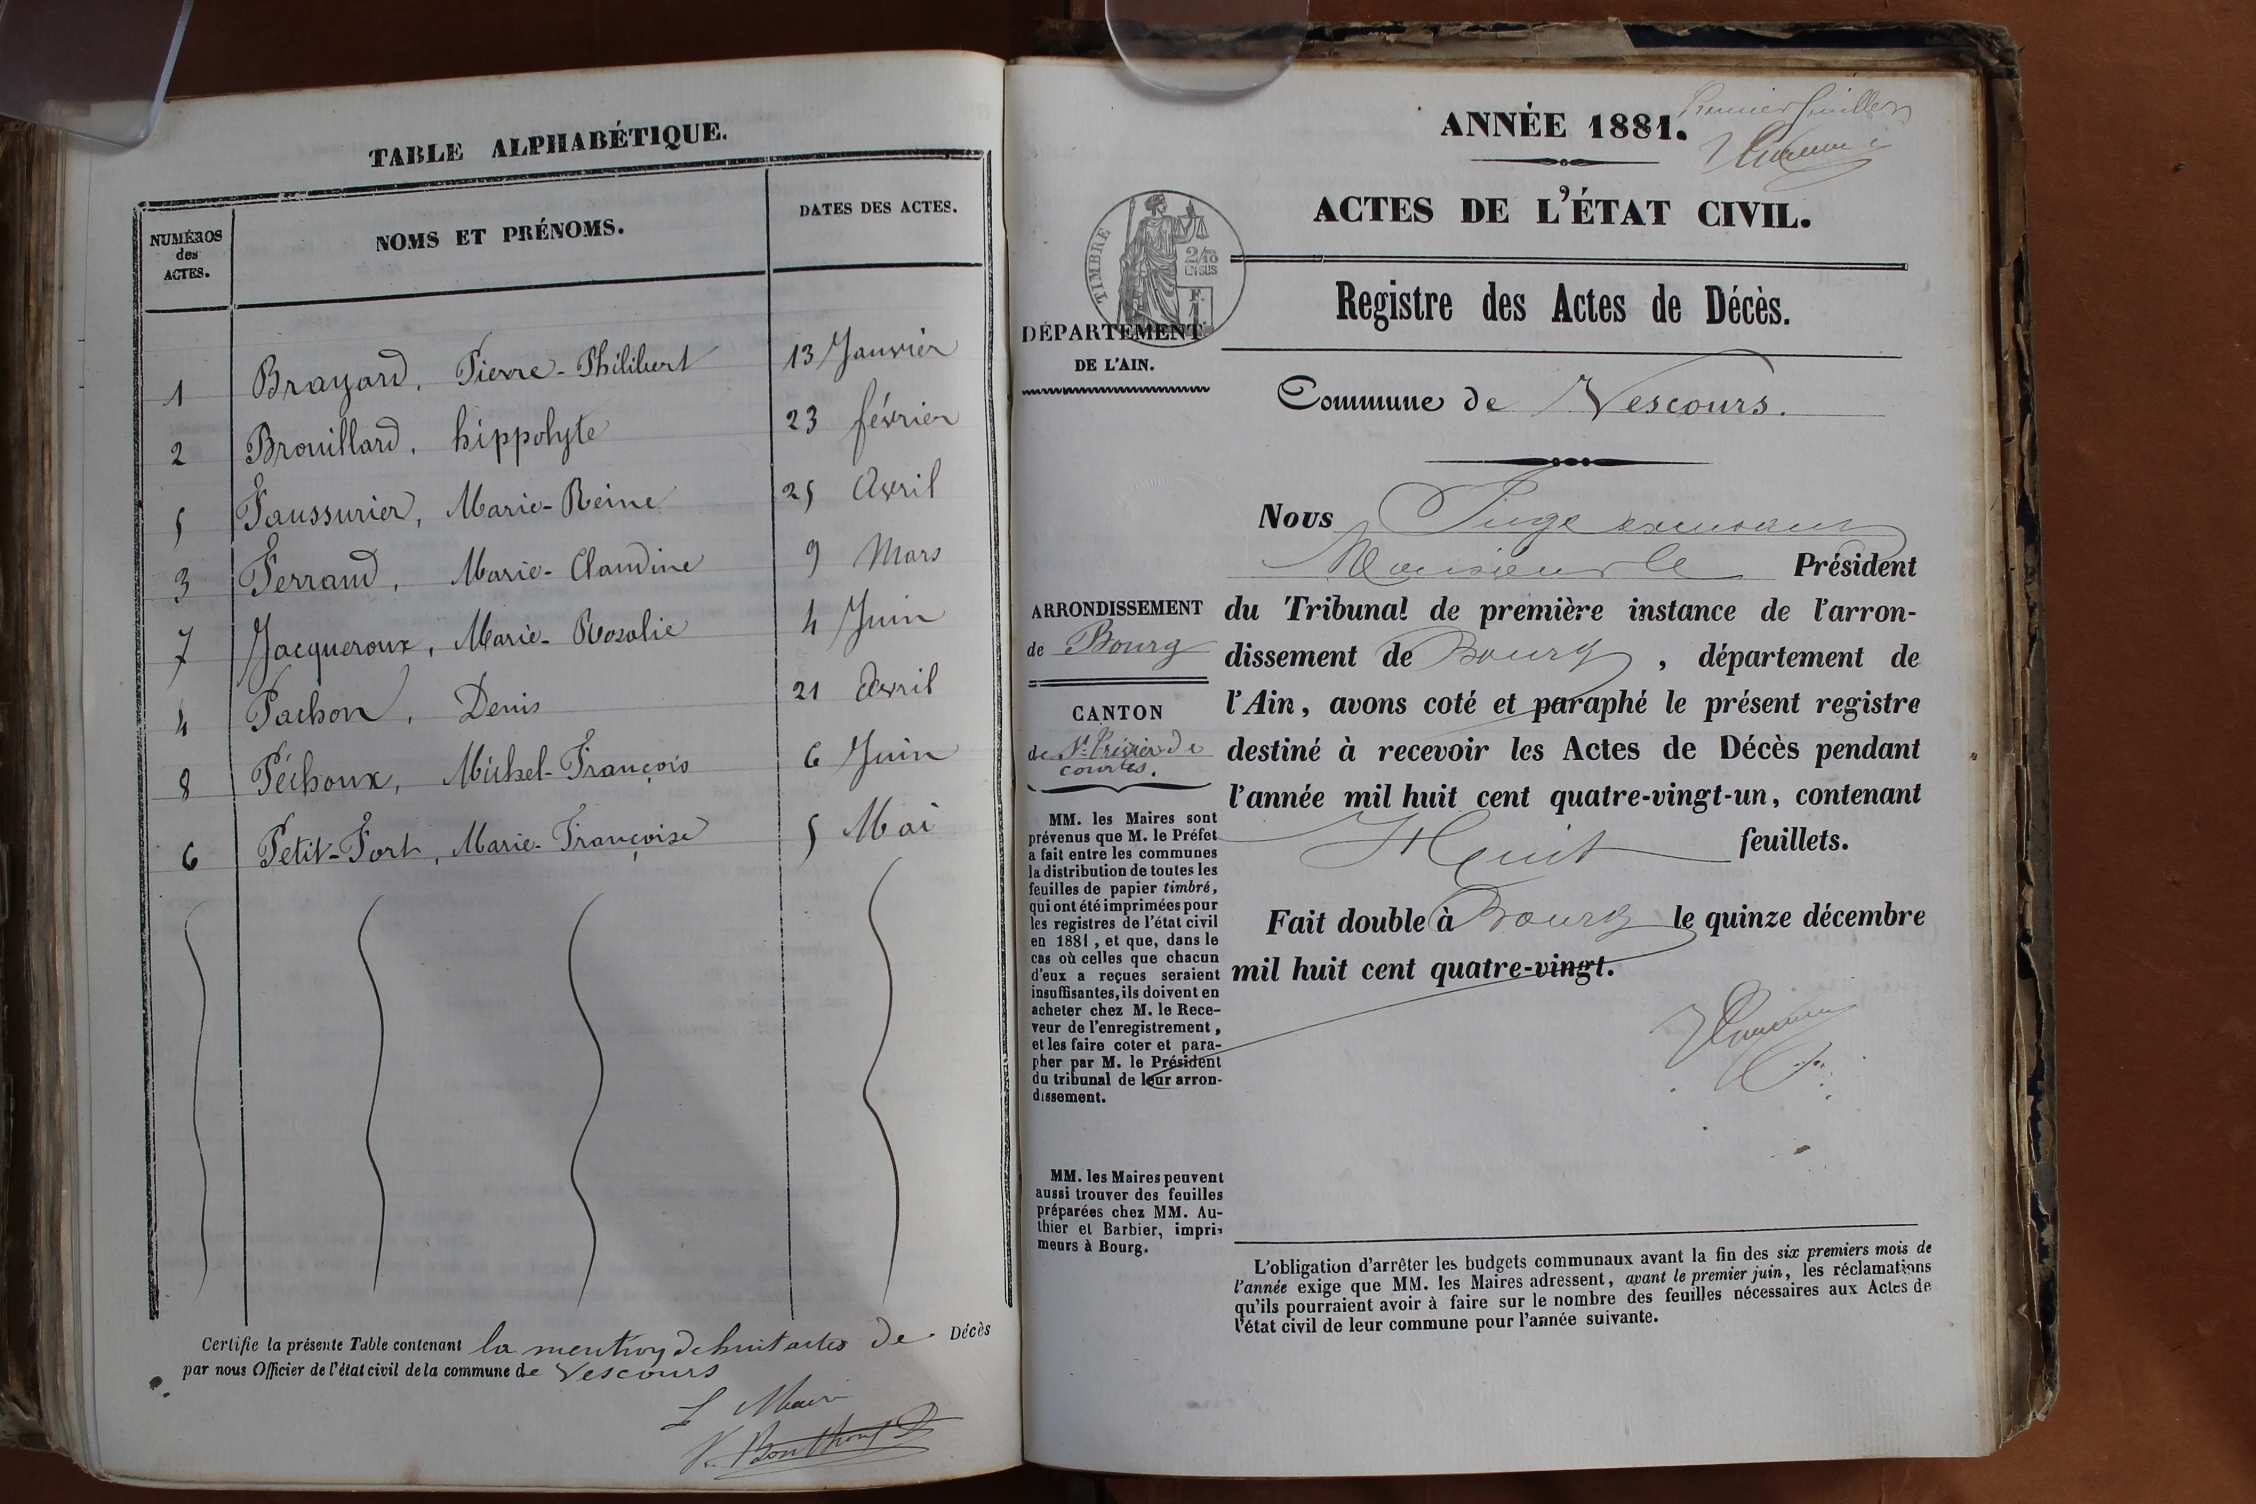 TABLE ALPHABÉTIQUE.
NUMÉROS des ACTES. NOMS ET PRÉNOMS. DATES DES ACTES.
1 Brayard, Pierre-Philibert 13 Janvier
2 Brouillard, hippolyte 23 février
5 Faussurier, Marie-Reine 25 Avril
3 Ferrand, Marie-Claudine 9 Mars
7 Jacqueroux, Marie-Rosalie 4 Juin
4 Pachon, Denis 21 Avril
8 Péchoux, Michel-François 6 Juin
6 Petit-Fort, Marie-Françoise 5 Mai
Certifie la présente Table contenant la mention de huit actes de Décès
par nous Officier de l'état civil de la commune de Vescours
L Maire
Premier feuillet
ANNÉE 1881.
ACTES DE L'ÉTAT CIVIL.
TIMBRE
2/10
EN SUS
F.
1
Registre des Actes de Décès.
DÉPARTEMENT
DE L'AIN.
Commune de Vescours.
Nous Juge
Monsieur le Président
du Tribunal de première instance de l'arron-
dissement de Bourg, département de
l'Ain, avons coté et paraphé le présent registre
destiné à recevoir les Actes de Décès pendant
l'année mil huit cent quatre-vingt-un, contenant
Huit feuillets.
Fait double à Bourg le quinze décembre
mil huit cent quatre-vingt.
ARRONDISSEMENT
de Bourg
CANTON
de St Trivier de
courtes.
MM. les Maires sont
prévenus que M. le Préfet
a fait entre les communes
la distribution de toutes les
feuilles de papier timbré,
qui ont été imprimées pour
les registres de l'état civil
en 1881, et que, dans le
cas où celles que chacun
d'eux a reçues seraient
insuffisantes, ils doivent en
acheter chez M. le Rece-
veur de l'enregistrement,
et les faire coter et para-
pher par M. le Président
du tribunal de leur arron-
dissement.
MM. les Maires peuvent
aussi trouver des feuilles
préparées chez MM. Au-
thier et Barbier, impri-
meurs à Bourg.
L'obligation d'arrêter les budgets communaux avant la fin des six premiers mois de
l'année exige que MM. les Maires adressent, avant le premier juin, les réclamations
qu'ils pourraient avoir à faire sur le nombre des feuilles nécessaires aux Actes de
l'état civil de leur commune pour l'année suivante.